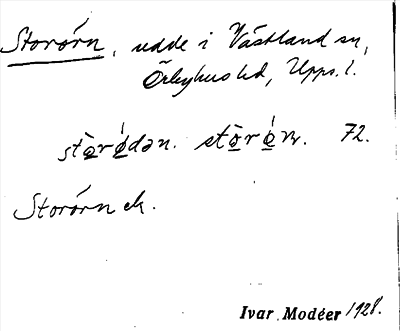 Storörn, udde i Västland sn,
Örbyhus hd, Upps. l.
72.
Storörn ek.
Ivar Modéer 1928.